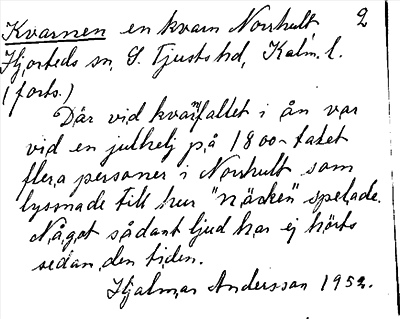 Kvarnen en kvarn Norrhult, 2
Hjorteds sn, S. Tjusts hd, Kalm. l.
(forts.)
Där vid kvarnfallet i ån var
vid en julhelj på 1800-talet
flera personer i Norrhult som
lyssnade till hur "näcken" spelade.
Något sådant ljud har ej hörts
sedan den tiden.
Hjalmar Andersson 1952.